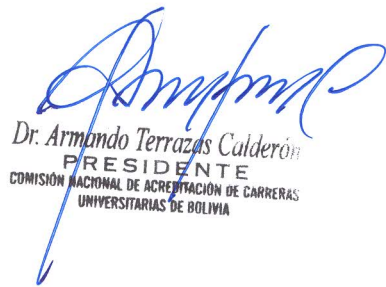 Dr. Armando Terrazas Calderón
PRESIDENTE
COMISIÓN NACIONAL DE ACREDITACIÓN DE CARRERAS
UNIVERSITARIAS DE BOLIVIA